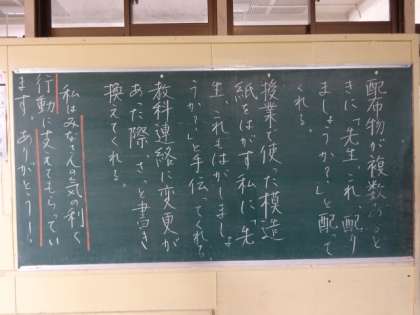 配布物が複数のと
きに「先生、これ、配り
ましょうか?」と配って
くれる。
授業で使った模造
紙をはがす私に「先
生、これもはがしましょ
うか?」と手伝ってくれる。
教科連絡に変更が
あった際、さっと書き
換えてくれる。
私はみなさんの気の利く
行動に支えてもらってい
ます。ありがとう!